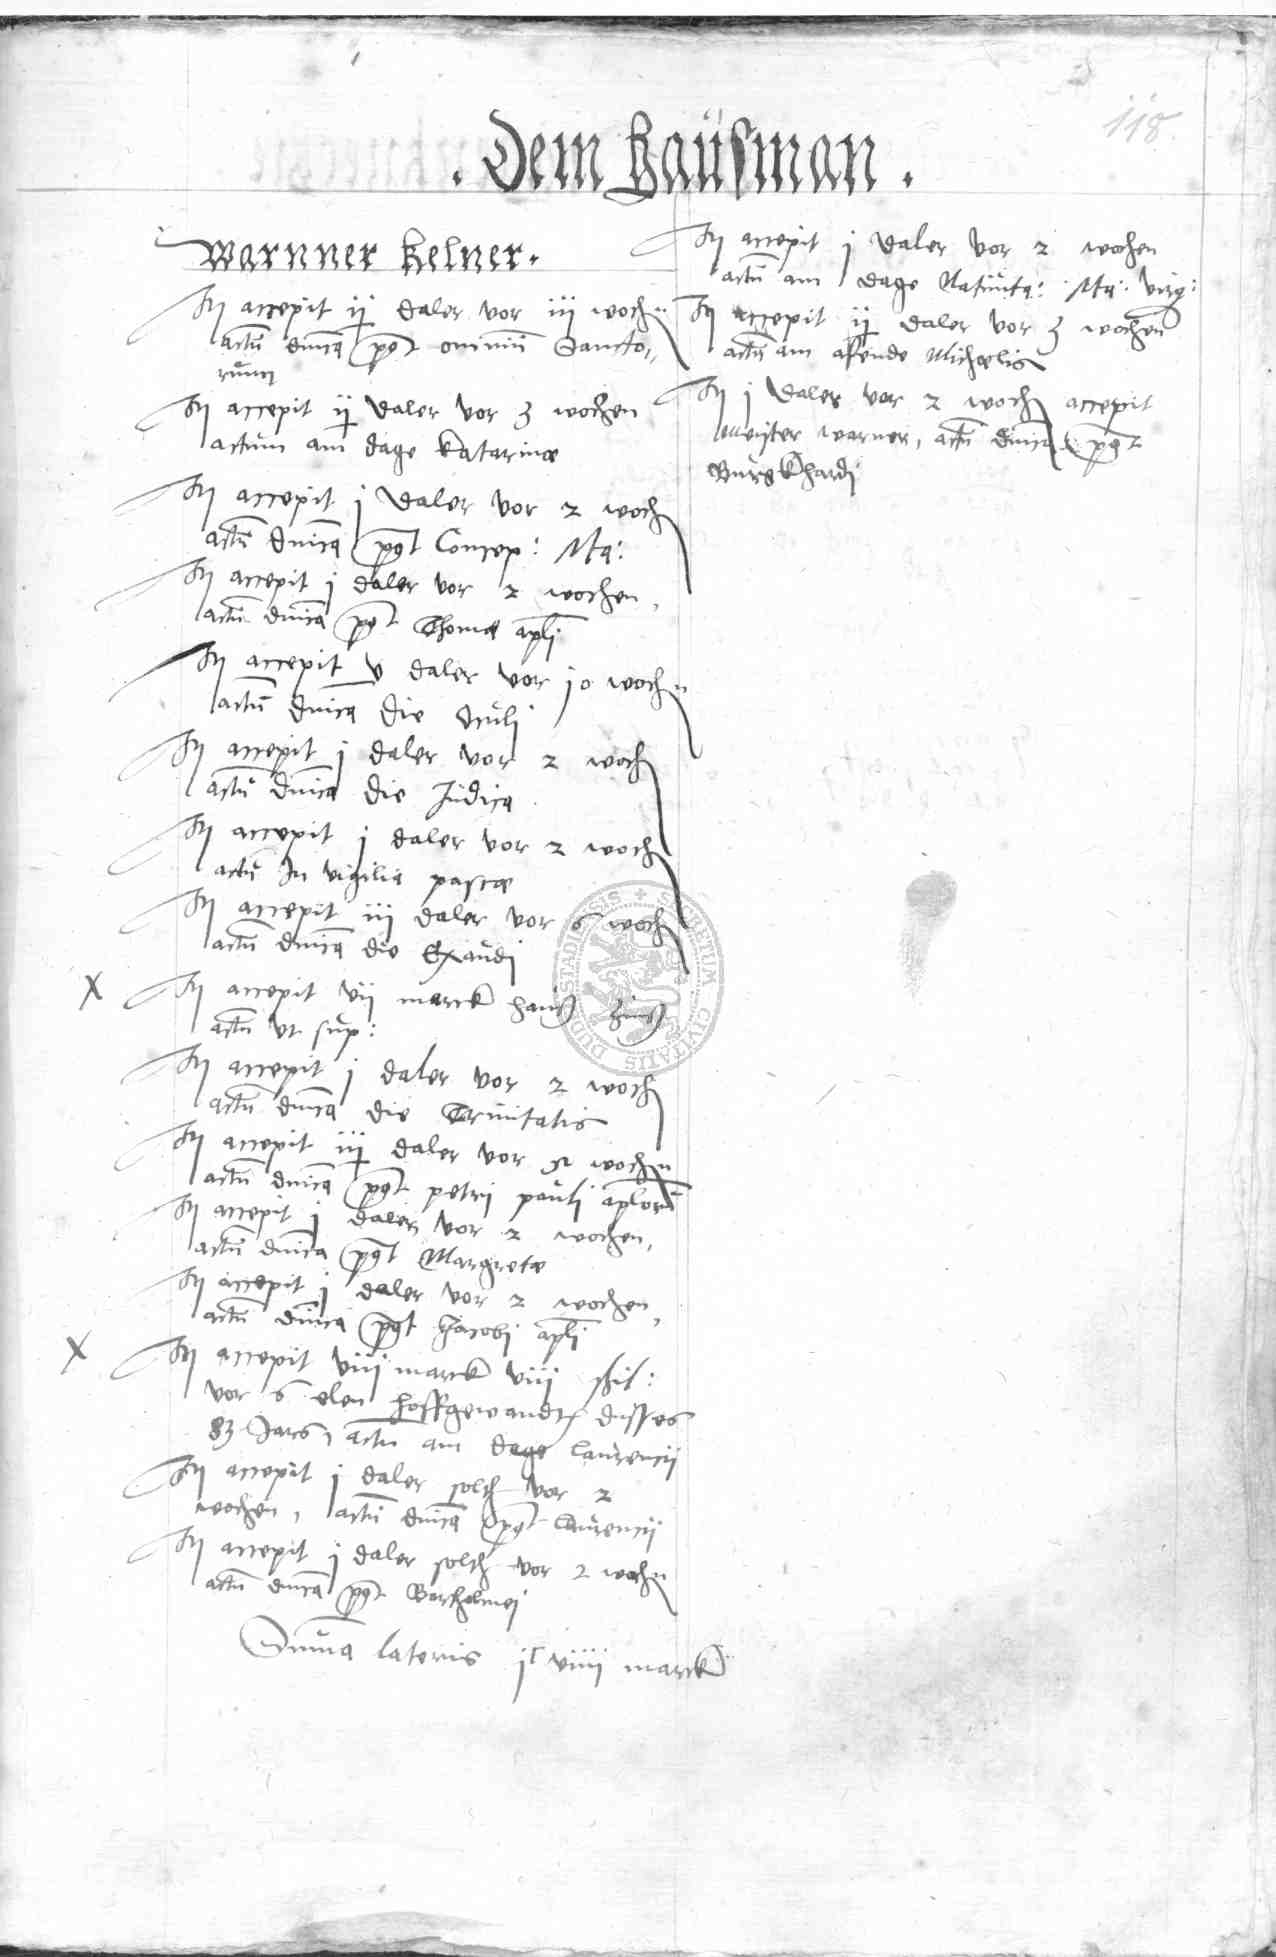 118.
. Dem Haüsman .
Warnner Kelner.
It accepit ij daler vor iij wochn
actū dnica post omniū Sancto,,
rum
It accepit ij daler vor 3 wochen
actum am dage Katarinæ
It accepit j daler vor 2 woch
actū dnica post Concep: Ma:
It accepit j daler vor 2 wochen,
actū dnica post Thomæ apli
It accepit v daler vor jo wochn
actū dnica die Oculi
It accepit j daler vor 2 woch
actū dnica die Judica
It accepit j daler vor 2 woch
actū In vigilia pascæ
It accepit iij daler vor 6 woch
actū dnica die Exaudi
x It accepit vij marck hauß zinß
actū vt sup:
It accepit j daler vor 2 woch
actū dnica die Trinitatis
It accepit iij daler vor 5 wochn
actū dnica post petri pauli aplorū
It accepit j daler vor 2 wochen,
actū dnica post Margretæ
It accepit j daler vor 2 wochen,
actū dnica post Jacobi apli
x It accepit viij marck viij schil:
vor 6 elen hoffgewandt disses
83 Jars, actū am dage Laurencij
It accepit j daler solth vor 2
wochen, actū dnica post Laurencij
It accepit j daler solth vor 2 wochn
actū dnica post Bartholmei
Suma lateris jc viiij marck
It accepit j daler vor 2 wochen
actū am dage Natiuita: Ma: virg:
It accepit ij daler vor 3 wochen
actū am afende Michaelis
It j daler vor 2 woch accepit
Meister warner, actū dnica post
Burgkhardi
SECRETUM CIVITATIS DUDERSTADIENSIS